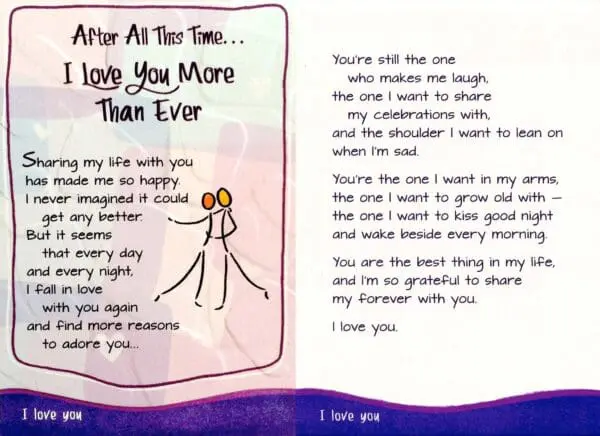 After All This Time...
I Love You More
Than Ever
Sharing my life with you
has made me so happy.
I never imagined it could
get any better.
But it seems
that every day
and every night,
I fall in love
with you again
and find more reasons
to adore you...
I love you
You're still the one
who makes me laugh,
the one I want to share
my celebrations with,
and the shoulder I want to lean on
when I'm sad.
You're the one I want in my arms,
the one I want to grow old with –
the one I want to kiss good night
and wake beside every morning.
You are the best thing in my life,
and I'm so grateful to share
my forever with you.
I love you.
I love you